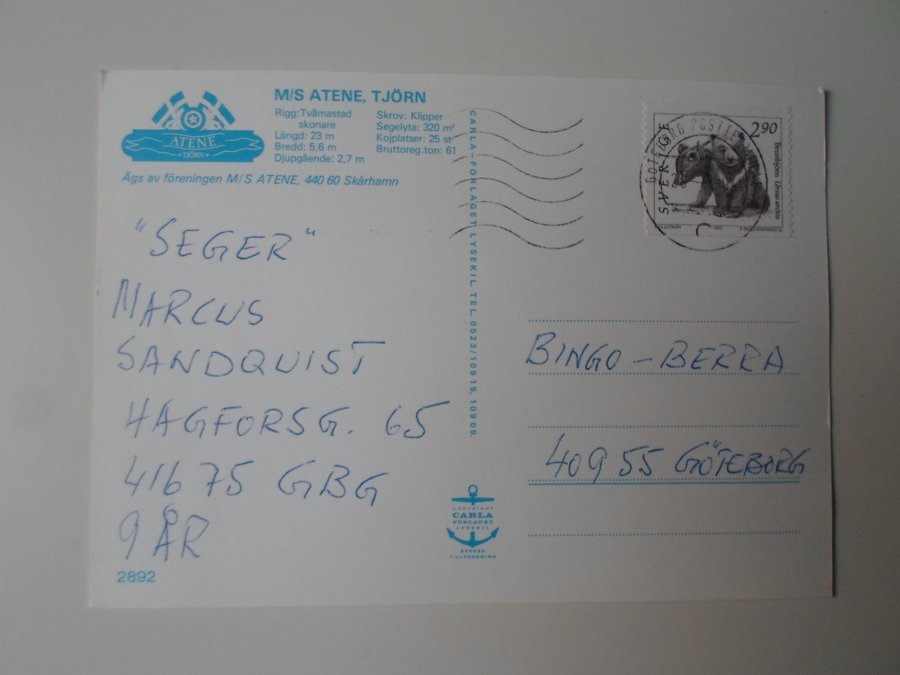 M/S ATENE, TJÖRN
Rigg: Tvåmastad skonare
Längd: 23 m
Bredd: 5,6 m
Djupgående: 2,7 m
Skrov: Klipper
Segelyta: 320 m²
Kojplatser: 25 st
Bruttoreg.ton: 61
ATENE
TJÖRN
Ägs av föreningen M/S ATENE, 440 60 Skärhamn
"SEGER"
MARCUS
SANDQUIST
HAGFORSG. 65
41675 GBG
9 ÅR
2892
CARLA-FÖRLAGET LYSEKIL. TEL. 0523/10919, 10909.
COPYRIGHT
CARLA
FÖRLAGET
LYSEKIL
SVENSK
TILLVERKNING
SVERIGE
2.90
Brunbjörn Ursus arctos
GÖTEBORG
C
BINGO-BERRA
40955 GÖTEBORG